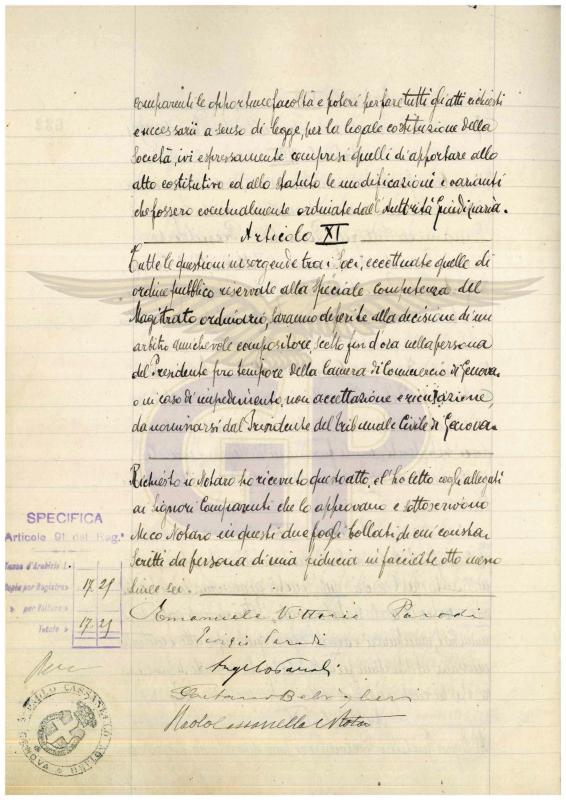 comparenti le opportune facoltà e poteri per fare tutti gli atti richiesti
e necessarii a senso di legge, per la legale costituzione della
Società, ivi espressamente compresi quelli di apportare allo
atto costitutivo ed allo statuto le modificazioni e varianti
che fossero eventualmente ordinate dall'Autorità Giudiziaria.
Articolo XI
Tutte le questioni insorgende tra i Soci, eccettuate quelle di
ordine pubblico riservate alla speciale competenza del
Magistrato ordinario, saranno deferite alla decisione di un
arbitro amichevole compositore, scelto fin d'ora nella persona
del Presidente pro tempore della Camera di Commercio di Genova
o in caso di impedimento, non accettazione e ricusazione,
da nominarsi dal Presidente del Tribunale Civile di Genova.
Richiesto io Notaro ho ricevuto questo atto, e l'ho letto cogli allegati
ai Signori Comparenti che lo approvano e sottoscrivono
Meco Notaro in questi due fogli bollati di cui constan
Scritti da persona di mia fiducia in facciette otto meno
linee sei.
SPECIFICA
Articolo 91 del Reg.º
Tassa d'Archivio L.
Copia per Registro » 17.25
» per Volture »
Totale » 17.25
Emanuele Vittorio Parodi
Parodi
Angelo Parodi
Gaetano
Paolo Cassanello Notaro
PAOLO CASSANELLO NOTARO
GENOVA
GP